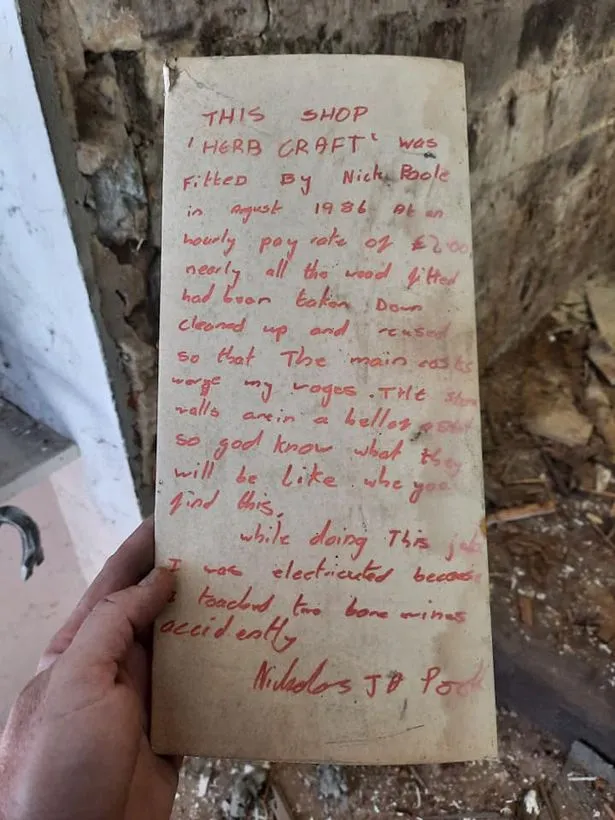 THIS SHOP
'HERB CRAFT' was
Fitted By Nick Poole
in August 1986 At an
hourly pay rate of £2.00
nearly all the wood fitted
had been taken Down
cleaned up and reused
so that The main costs
warge my wages. THE stone
walls are in a bell of a state
so god know what they
will be like whe you
find this.
while doing This job
I was electricuted because
I touched two bare wires
accidently
Nicholas J